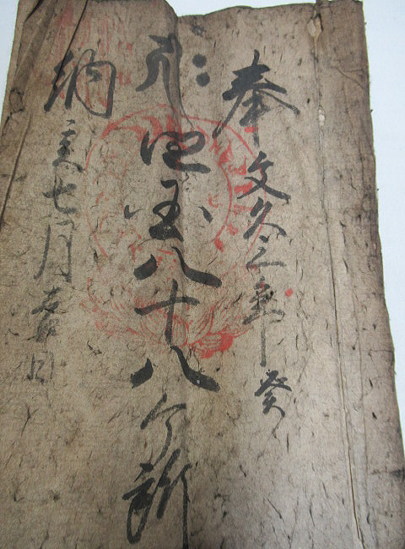 奉 文久三年 癸
四国八十八ヶ所
納 亥七月吉日